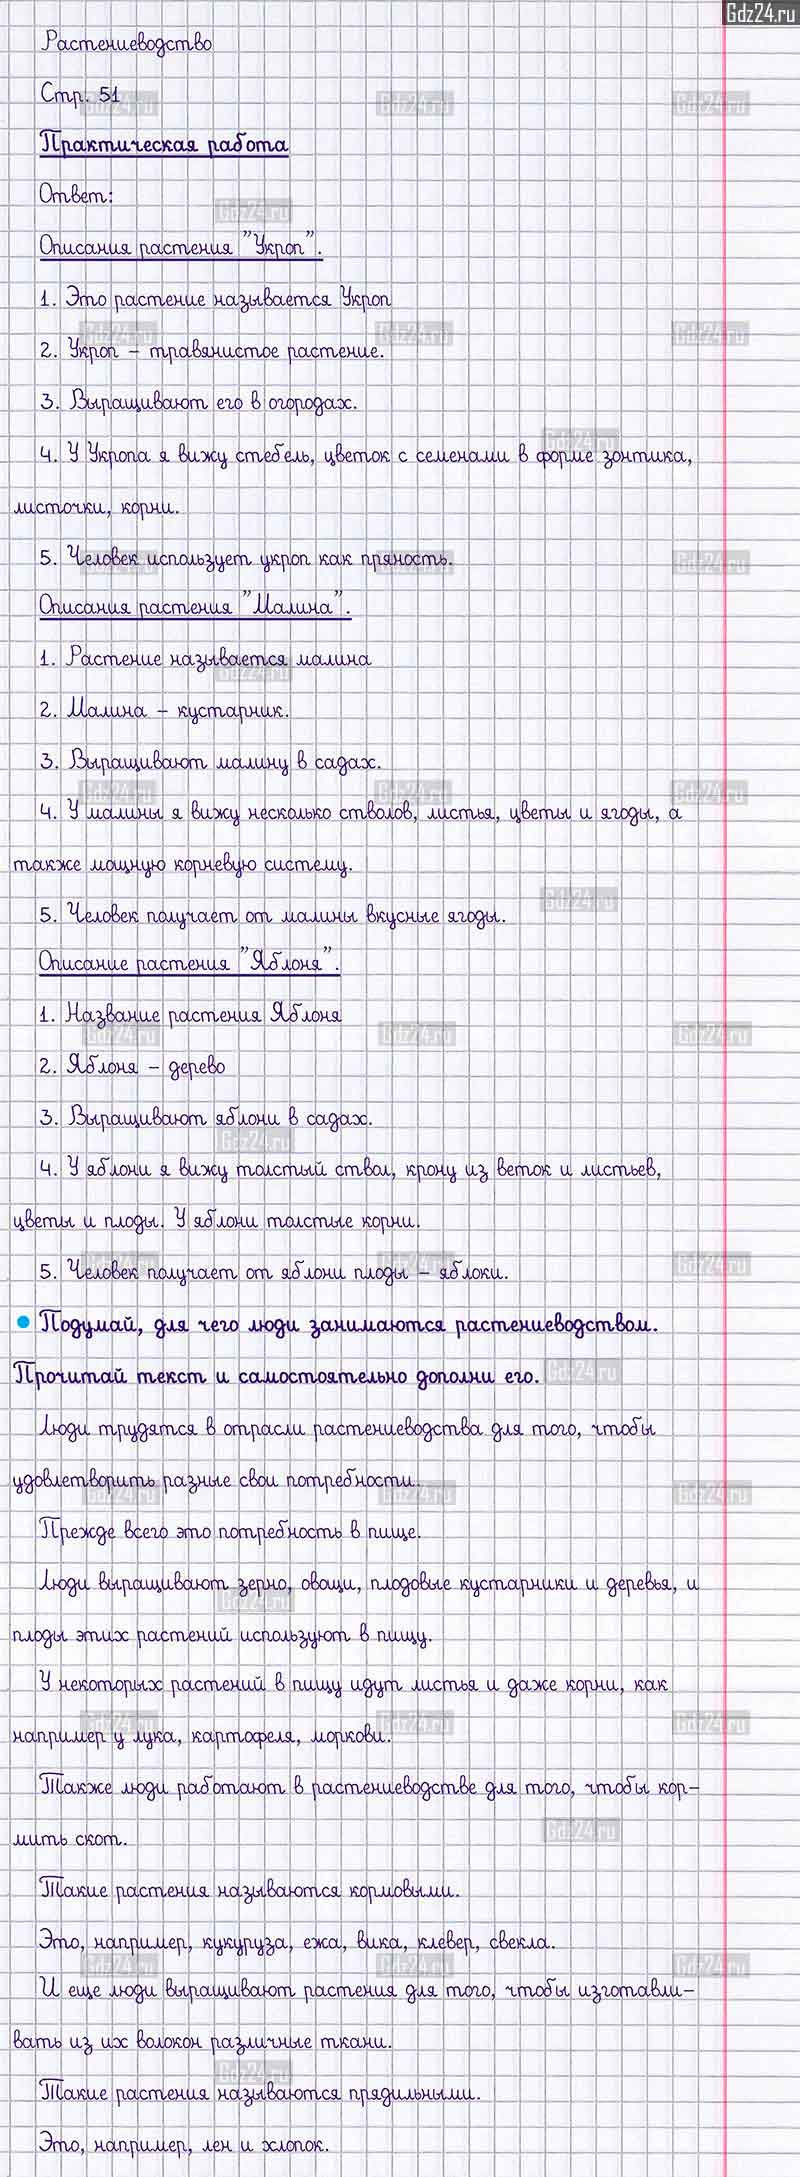 Gdz24.ru
Растениеводство
Стр. 51
Практическая работа
Ответ:
Описания растения "Укроп".
1. Это растение называется Укроп
2. Укроп – травянистое растение.
3. Выращивают его в огородах.
4. У Укропа я вижу стебель, цветок с семенами в форме зонтика,
листочки, корни.
5. Человек использует укроп как пряность.
Описания растения "Малина".
1. Растение называется малина
2. Малина – кустарник.
3. Выращивают малину в садах.
4. У малины я вижу несколько стволов, листья, цветы и ягоды, а
также мощную корневую систему.
5. Человек получает от малины вкусные ягоды.
Описание растения "Яблоня".
1. Название растения Яблоня
2. Яблоня – дерево
3. Выращивают яблони в садах.
4. У яблони я вижу толстый ствол, крону из веток и листьев,
цветы и плоды. У яблони толстые корни.
5. Человек получает от яблони плоды – яблоки.
• Подумай, для чего люди занимаются растениеводством.
Прочитай текст и самостоятельно дополни его.
Люди трудятся в отрасли растениеводства для того, чтобы
удовлетворить разные свои потребности.
Прежде всего это потребность в пище.
Люди выращивают зерно, овощи, плодовые кустарники и деревья, и
плоды этих растений используют в пищу.
У некоторых растений в пищу идут листья и даже корни, как
например у лука, картофеля, моркови.
Также люди работают в растениеводстве для того, чтобы кор–
мить скот.
Такие растения называются кормовыми.
Это, например, кукуруза, ежа, вика, клевер, свекла.
И еще люди выращивают растения для того, чтобы изготавли–
вать из их волокон различные ткани.
Такие растения называются прядильными.
Это, например, лен и хлопок.